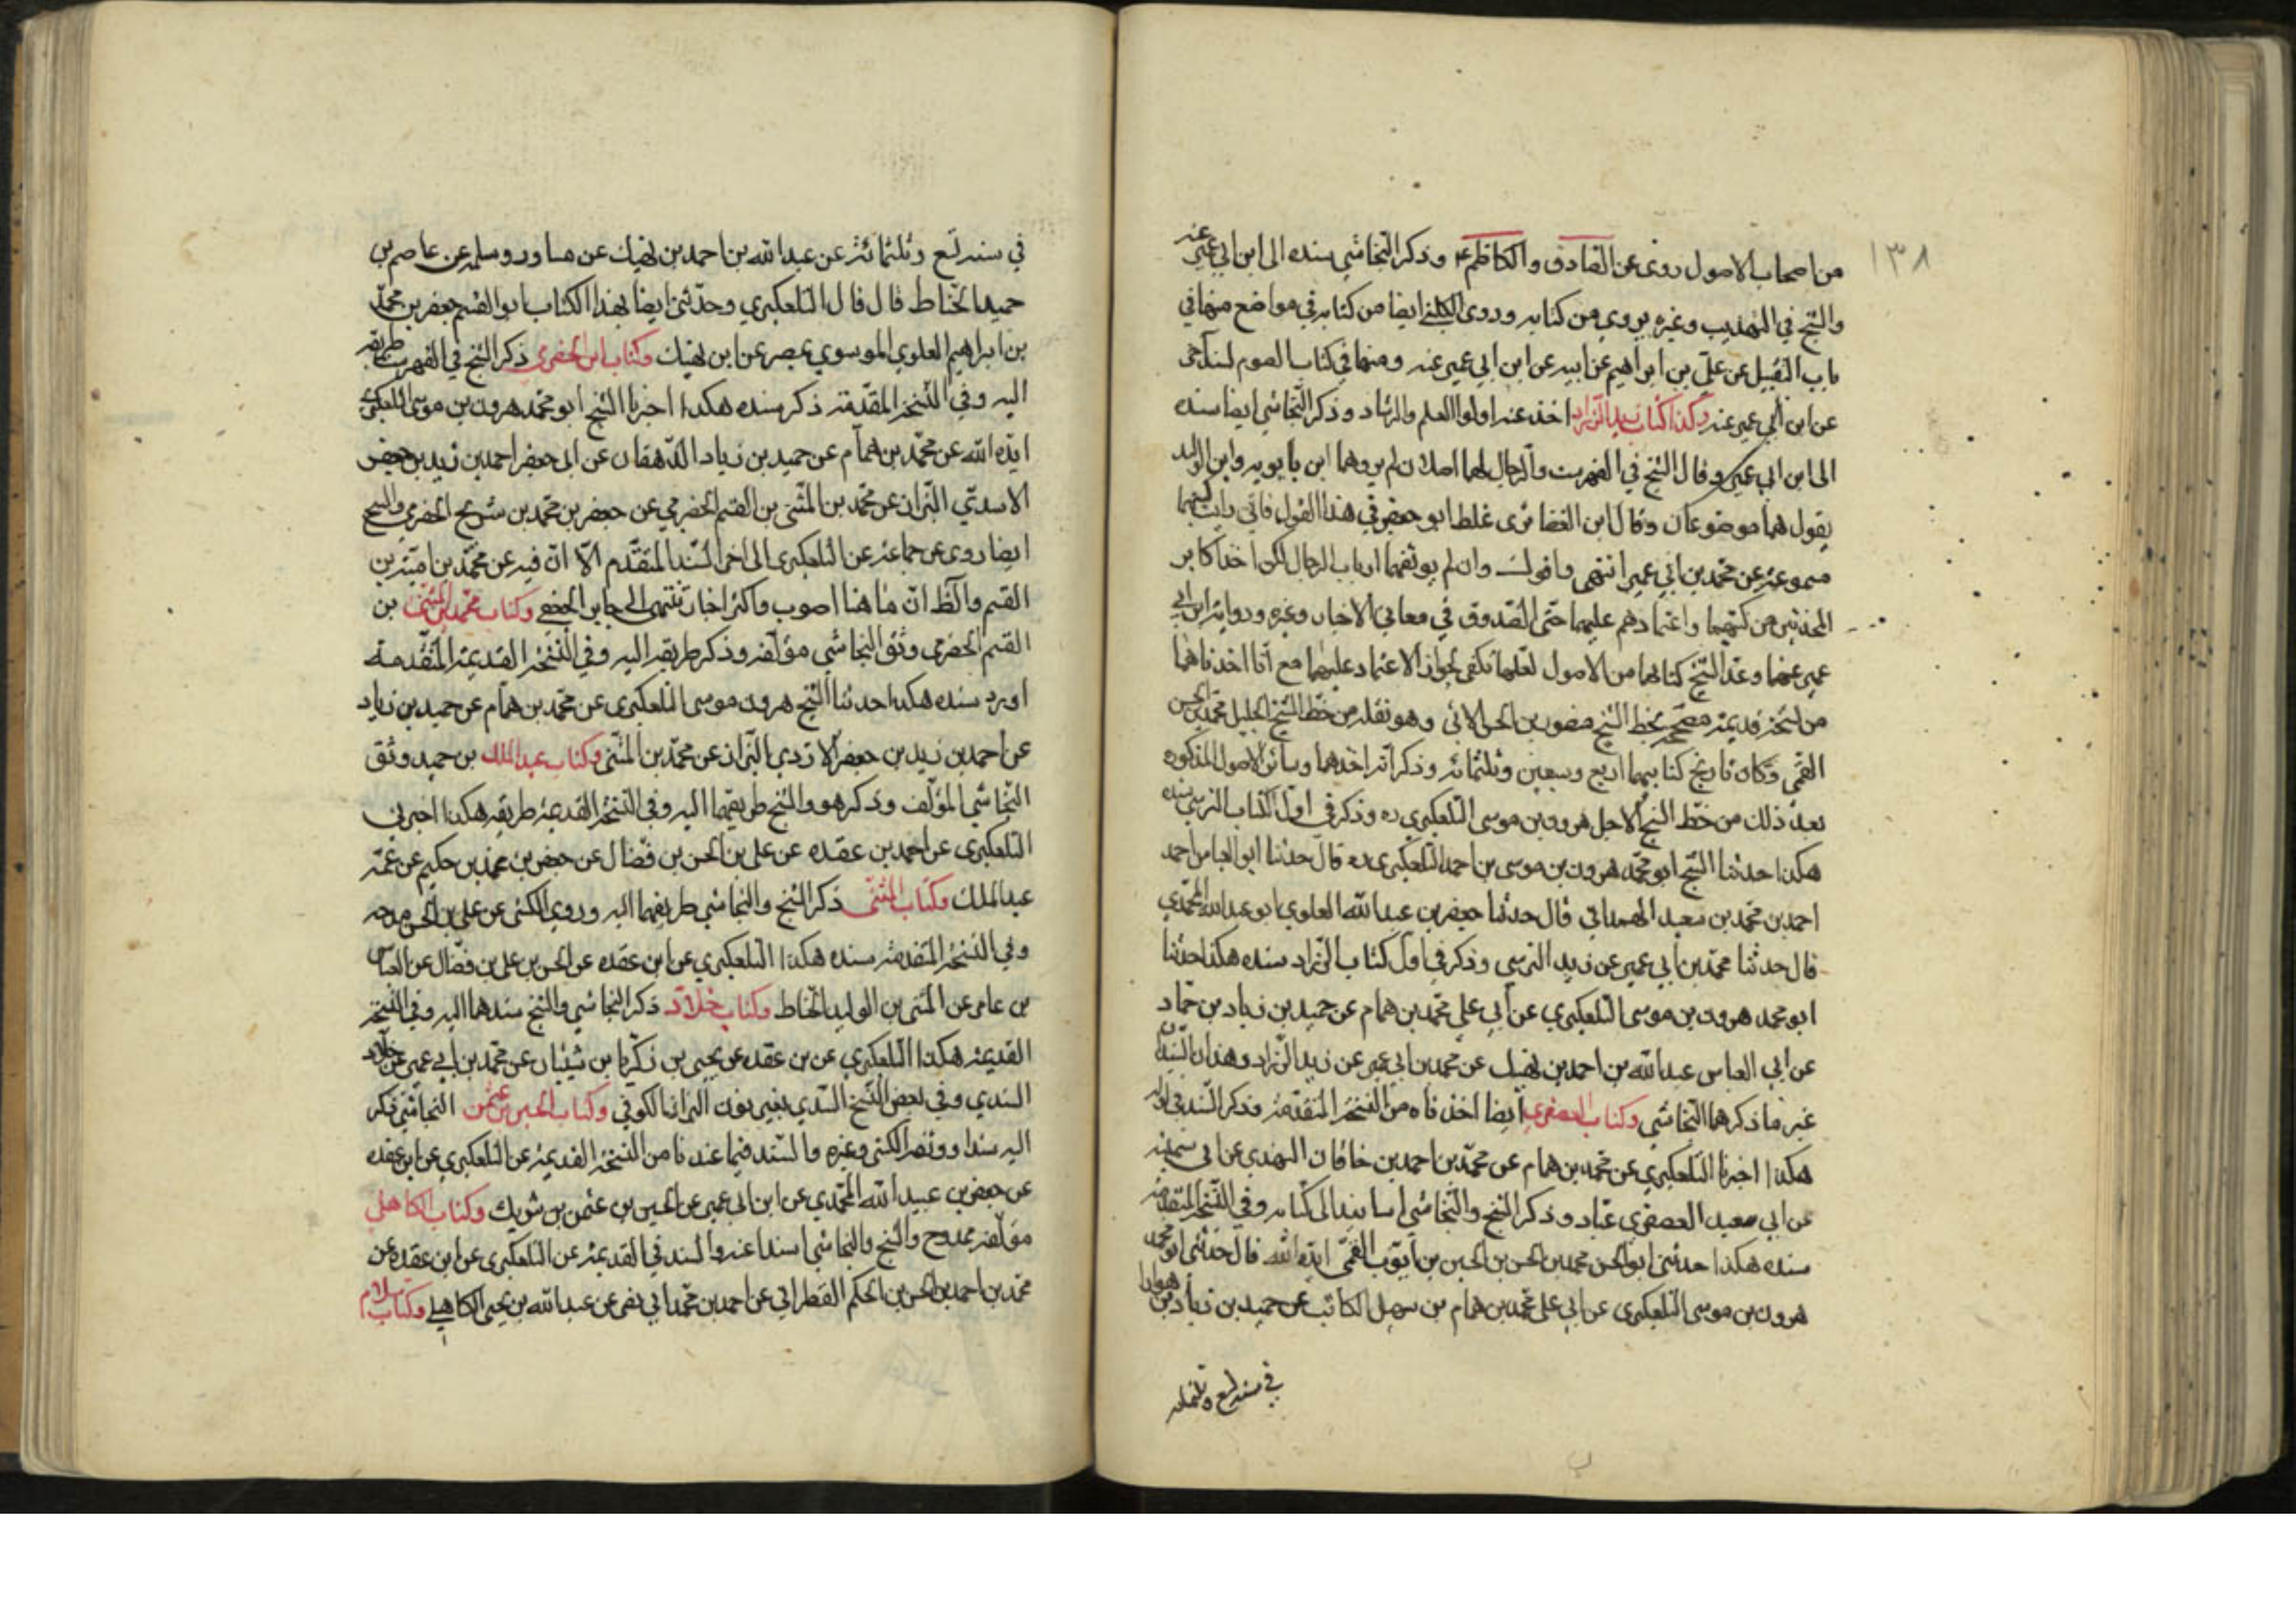 ١٣٨
من اصحاب الاصول روى عن الصادق والكاظم ع وذكر النجاشي سنده الى ابن ابي عمير عنه
والشيخ في التهذيب وغيره يروي من كتابه وروى الكليني ايضا من كتابه في مواضع منها في
باب التقبيل عن علي بن ابراهيم عن ابيه عن ابن ابي عمير عنه ومنها في كتاب الصوم بسند آخر
عن ابن ابي عمير عنه وكذا كتاب زيد الزراد اخذ عنه اولوا العلم والرشاد وذكر النجاشي ايضا سنده
الى ابن ابي عمير وقال الشيخ في الفهرست والرجال لهما اصلان لم يروهما ابن بابويه وابن الوليد
يقول هما موضوعان وقال ابن الغضائرى غلط ابو جعفر في هذا القول فاني رايت كتبهما
مسموعة عن محمد بن ابي عمير انتهى واقول وان لم يوثقهما ارباب الرجال لكن اخذ اكابر
المحدثين من كتبهما واعتمادهم عليهما حتى الصدوق في معاني الاخبار وغيره ورواية ابن ابي
عمير عنهما وعد الشيخ كتابهما من الاصول لعلها تكفي لجواز الاعتماد عليهما مع انا اخذناهما
من نسخة قديمة مصححة بخط الشيخ منصور بن الحسن الآبي وهو نقله من خط الشيخ الجليل محمد بن الحسن
القمي وكان تاريخ كتابتهما اربع وسبعين وثلثمائه وذكر انه اخذهما وسائر الاصول المذكوره
بعد ذلك من خط الشيخ الاجل هرون بن موسى التلعكبري ره وذكر في اول كتاب النرسي سنده
هكذا حدثنا الشيخ ابو محمد هرون بن موسى بن احمد التلعكبرى ره قال حدثنا ابو العباس احمد
احمد بن محمد بن سعيد الهمداني قال حدثنا جعفر بن عبد الله العلوي ابو عبد الله المحمدي
قال حدثنا محمد بن ابي عمير عن زيد النرسي وذكر في اول كتاب الزراد سنده هكذا حدثنا
ابو محمد هرون بن موسى التلعكبري عن ابي علي محمد بن همام عن حميد بن زياد بن حماد
عن ابي العباس عبد الله بن احمد بن نهيك عن محمد بن ابي عمير عن زيد الزراد وهذان السندان
غير ما ذكرهما النجاشي وكتاب العصفري ايضا اخذناه من النسخة المتقدمة وذكر السند في اوله
هكذا اخبرنا التلعكبري عن محمد بن همام عن محمد بن احمد بن خاقان النهدي عن ابي سمينة
عن ابي سعيد العصفري عباد وذكر الشيخ والنجاشي اسانيد الى كتابه وفي النسخة المتقدمة
سنده هكذا حدثني ابو الحسن محمد بن الحسن بن الحسين بن ايوب القمي ايده الله قال حدثني ابو محمد
هرون بن موسى التلعكبرى عن ابي علي محمد بن همام بن سهيل الكاتب عن حميد بن زياد بن هوارا
في سنة تسع وثلثمائه
في سنة تسع وثلثمائة عن عبد الله بن احمد بن نهيك عن مساور وسلمه عن عاصم بن
حميد الحناط قال قال التلعكبري وحدثني ايضا بهذا الكتاب ابو القسم جعفر بن محمد
بن ابراهيم العلوي الموسوي بمصر عن ابن نهيك وكتاب ابن الحضرمي ذكر الشيخ في الفهرست طريقه
اليه وفي النسخة المقدمة ذكر سنده هكذا اخبرنا الشيخ ابو محمد هرون بن موسى التلعكبري
ايده الله عن محمد بن همام عن حميد بن زياد الدهقان عن ابي جعفر احمد بن زيد بن جعفر
الاسدي البزاز عن محمد بن المثنى بن القسم الحضرمي عن جعفر بن محمد بن شريح الحضرمي والشيخ
ايضا روى عن جماعة عن التلعكبرى الى اخر السند المتقدم الا ان فيه عن محمد بن امية بن
القسم والظ ان ما هنا اصوب واكثر اخباره تنتهي الى جابر الجعفي وكتاب محمد بن المثنى بن
القسم الحضرمي وثق النجاشي مؤلفه وذكر طريقه اليه وفي النسخة القديمة المتقدمة
اورد سنده هكذا حدثنا الشيخ هرون موسى التلعكبرى عن محمد بن همام عن حميد بن زياد
عن احمد بن زيد بن جعفر الازدي البزاز عن محمد بن المثنى وكتاب عبد الملك بن حميد وثق
النجاشي المؤلف وذكر هو والشيخ طريقهما اليه وفي النسخة القديمة طريقه هكذا اخبرني
التلعكبرى عن احمد بن عقده عن علي بن الحسن بن فضال عن جعفر بن محمد بن حكيم عن عمه
عبد الملك وكتاب المثنى ذكر الشيخ والنجاشي طريقهما اليه وروى الكشي عن علي بن الحسن مدحه
وفي النسخة المتقدمة سنده هكذا التلعكبري عن ابن عقده عن الحسن بن علي بن فضال عن العباس
بن عامر عن المثنى بن الوليد الحناط وكتاب خلاد ذكر النجاشي والشيخ سندهما اليه وفي النسخة
القديمة هكذا التلعكبري عن بن عقده عن يحيى بن زكريا بن شيبان عن محمد بن ابي عمير عن خلاد
السندي وفي بعض النسخ السدي بغير نون البزاز الكوفي وكتاب الحسين بن عثمن النجاشي ذكر
اليه سندا ووثقه الكشي وغيره والسند فيما عندنا من النسخة القديمة عن التلعكبري عن ابن عقده
عن جعفر بن عبد الله المحمدي عن ابن ابي عمير عن الحسين بن عثمن بن شريك وكتاب الكاهلي
مؤلفه ممدوح والشيخ والنجاشي اسندا عنه والسند في القديمة عن التلعكبرى عن ابن عقده عن
محمد بن احمد بن الحسن بن الحكم القطراني عن احمد بن محمد ابي نصر عن عبد الله بن يحيى الكاهلي وكتاب سلام